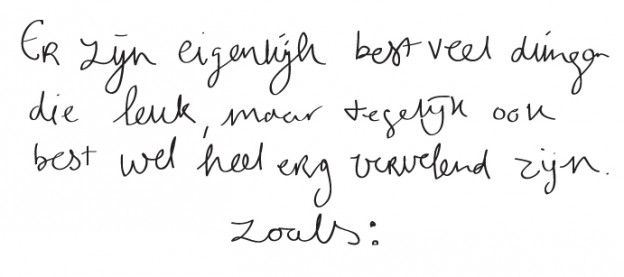 Er zijn eigenlijk best veel dingen
die leuk, maar tegelijk ook
best wel heel erg vervelend zijn.
zoals: